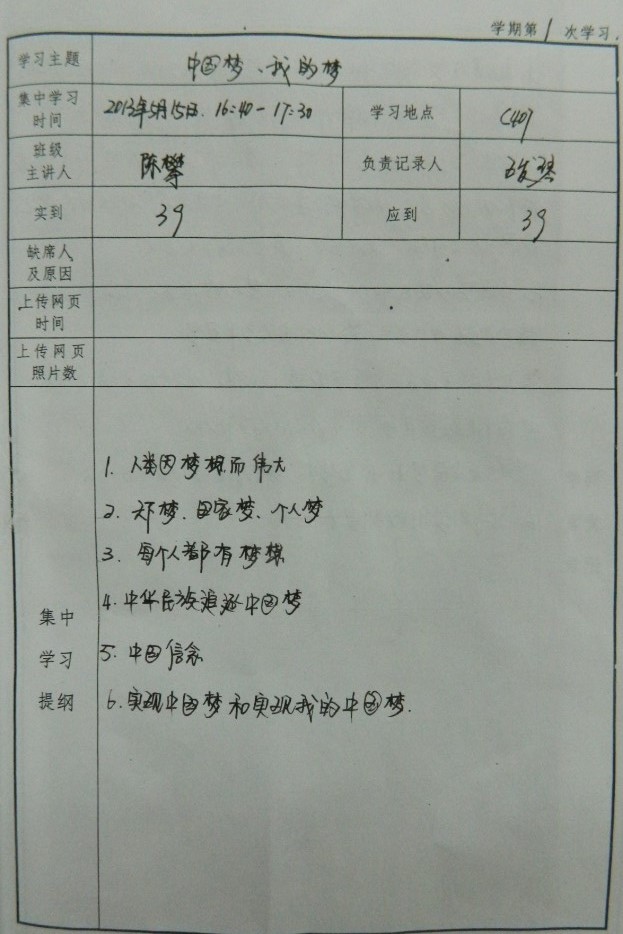 学期第1次学习.
学习主题 中国梦、我的梦
集中学习时间 2013年5月15日. 16:40-17:30 学习地点 C407
班级主讲人 陈攀 负责记录人
实到 39 应到 39
缺席人及原因
上传网页时间
上传网页照片数
集中学习提纲
1. 人类因梦想而伟大
2. 天下梦、国家梦、个人梦
3. 每个人都有梦想
4. 中华民族追逐中国梦
5. 中国信念
6. 实现中国梦和实现我的中国梦.